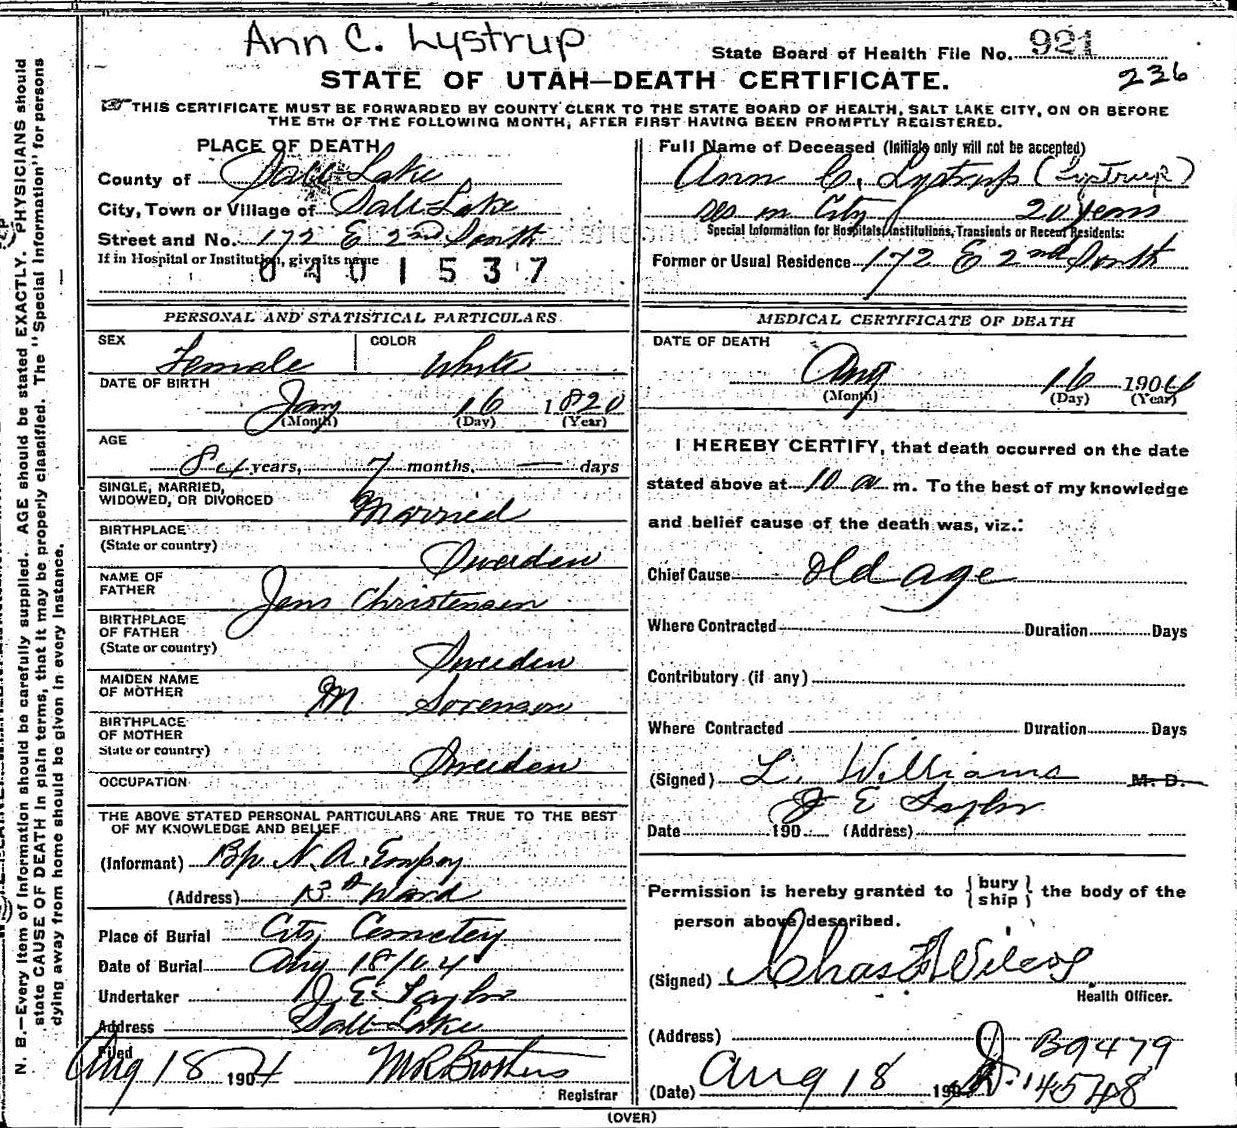 Ann C. Lystrup
State Board of Health File No. 921
STATE OF UTAH—DEATH CERTIFICATE.
236
THIS CERTIFICATE MUST BE FORWARDED BY COUNTY CLERK TO THE STATE BOARD OF HEALTH, SALT LAKE CITY, ON OR BEFORE
THE 5TH OF THE FOLLOWING MONTH, AFTER FIRST HAVING BEEN PROMPTLY REGISTERED.
PLACE OF DEATH
County of Salt Lake
City, Town or Village of Salt Lake
Street and No. 172 E 2nd South
If in Hospital or Institution, give its name
0401537
Full Name of Deceased (Initials only will not be accepted)
Ann C. Lystrup (Lystrup)
res in City 20 years
Special Information for Hospitals, Institutions, Transients or Recent Residents:
Former or Usual Residence 172 E 2nd South
PERSONAL AND STATISTICAL PARTICULARS
SEX Female COLOR White
DATE OF BIRTH
Jan 16 1820
(Month) (Day) (Year)
AGE
84 years, 7 months, — days
SINGLE, MARRIED,
WIDOWED, OR DIVORCED Married
BIRTHPLACE
(State or country) Sweden
NAME OF
FATHER Jens Christensen
BIRTHPLACE
OF FATHER
(State or country) Sweden
MAIDEN NAME
OF MOTHER M Sorenson
BIRTHPLACE
OF MOTHER
State or country) Sweden
OCCUPATION
THE ABOVE STATED PERSONAL PARTICULARS ARE TRUE TO THE BEST
OF MY KNOWLEDGE AND BELIEF
(Informant) Bp N. A. Empey
(Address) 13th Ward
Place of Burial City Cemetery
Date of Burial Aug 18/04
Undertaker J. E. Taylor
Address Salt Lake
Filed
Aug 18 1904
Registrar
MEDICAL CERTIFICATE OF DEATH
DATE OF DEATH
Aug 16 1904
(Month) (Day) (Year)
I HEREBY CERTIFY, that death occurred on the date
stated above at 10 a m. To the best of my knowledge
and belief cause of the death was, viz.:
Chief Cause Old age
Where Contracted Duration Days
Contributory (if any)
Where Contracted Duration Days
(Signed) L. Williams M. D.
J E Taylor
Date 190 (Address)
Permission is hereby granted to {bury
ship} the body of the
person above described.
(Signed) Chas F Wilcox
Health Officer.
(Address)
J B9479
(Date) Aug 18 190
(OVER)
N. B.—Every item of information should be carefully supplied. AGE should be stated EXACTLY. PHYSICIANS should
state CAUSE OF DEATH in plain terms, that it may be properly classified. The "Special Information" for persons
dying away from home should be given in every instance.